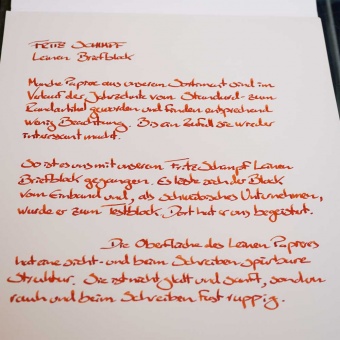 FRITZ SCHIMPF
Leinen Briefblock
Manche Papiere aus unserem Sortiment sind im
Verlauf der Jahrzehnte vom Standard- zum
Randartikel geworden und finden entsprechend
wenig Beachtung. Bis ein Zufall sie wieder
interessant macht.
So ist es uns mit unserem Fritz Schimpf Leinen
Briefblock gegangen. Es löste sich der Block
vom Einband und, als schwäbisches Unternehmen,
wurde er zum Testblock. Dort hat er uns begeistert.
Die Oberfläche des Leinen Papiers
hat eine sicht- und beim Schreiben spürbare
Struktur. Sie ist nicht glatt und sanft, sondern
rauh und beim Schreiben fast ruppig.